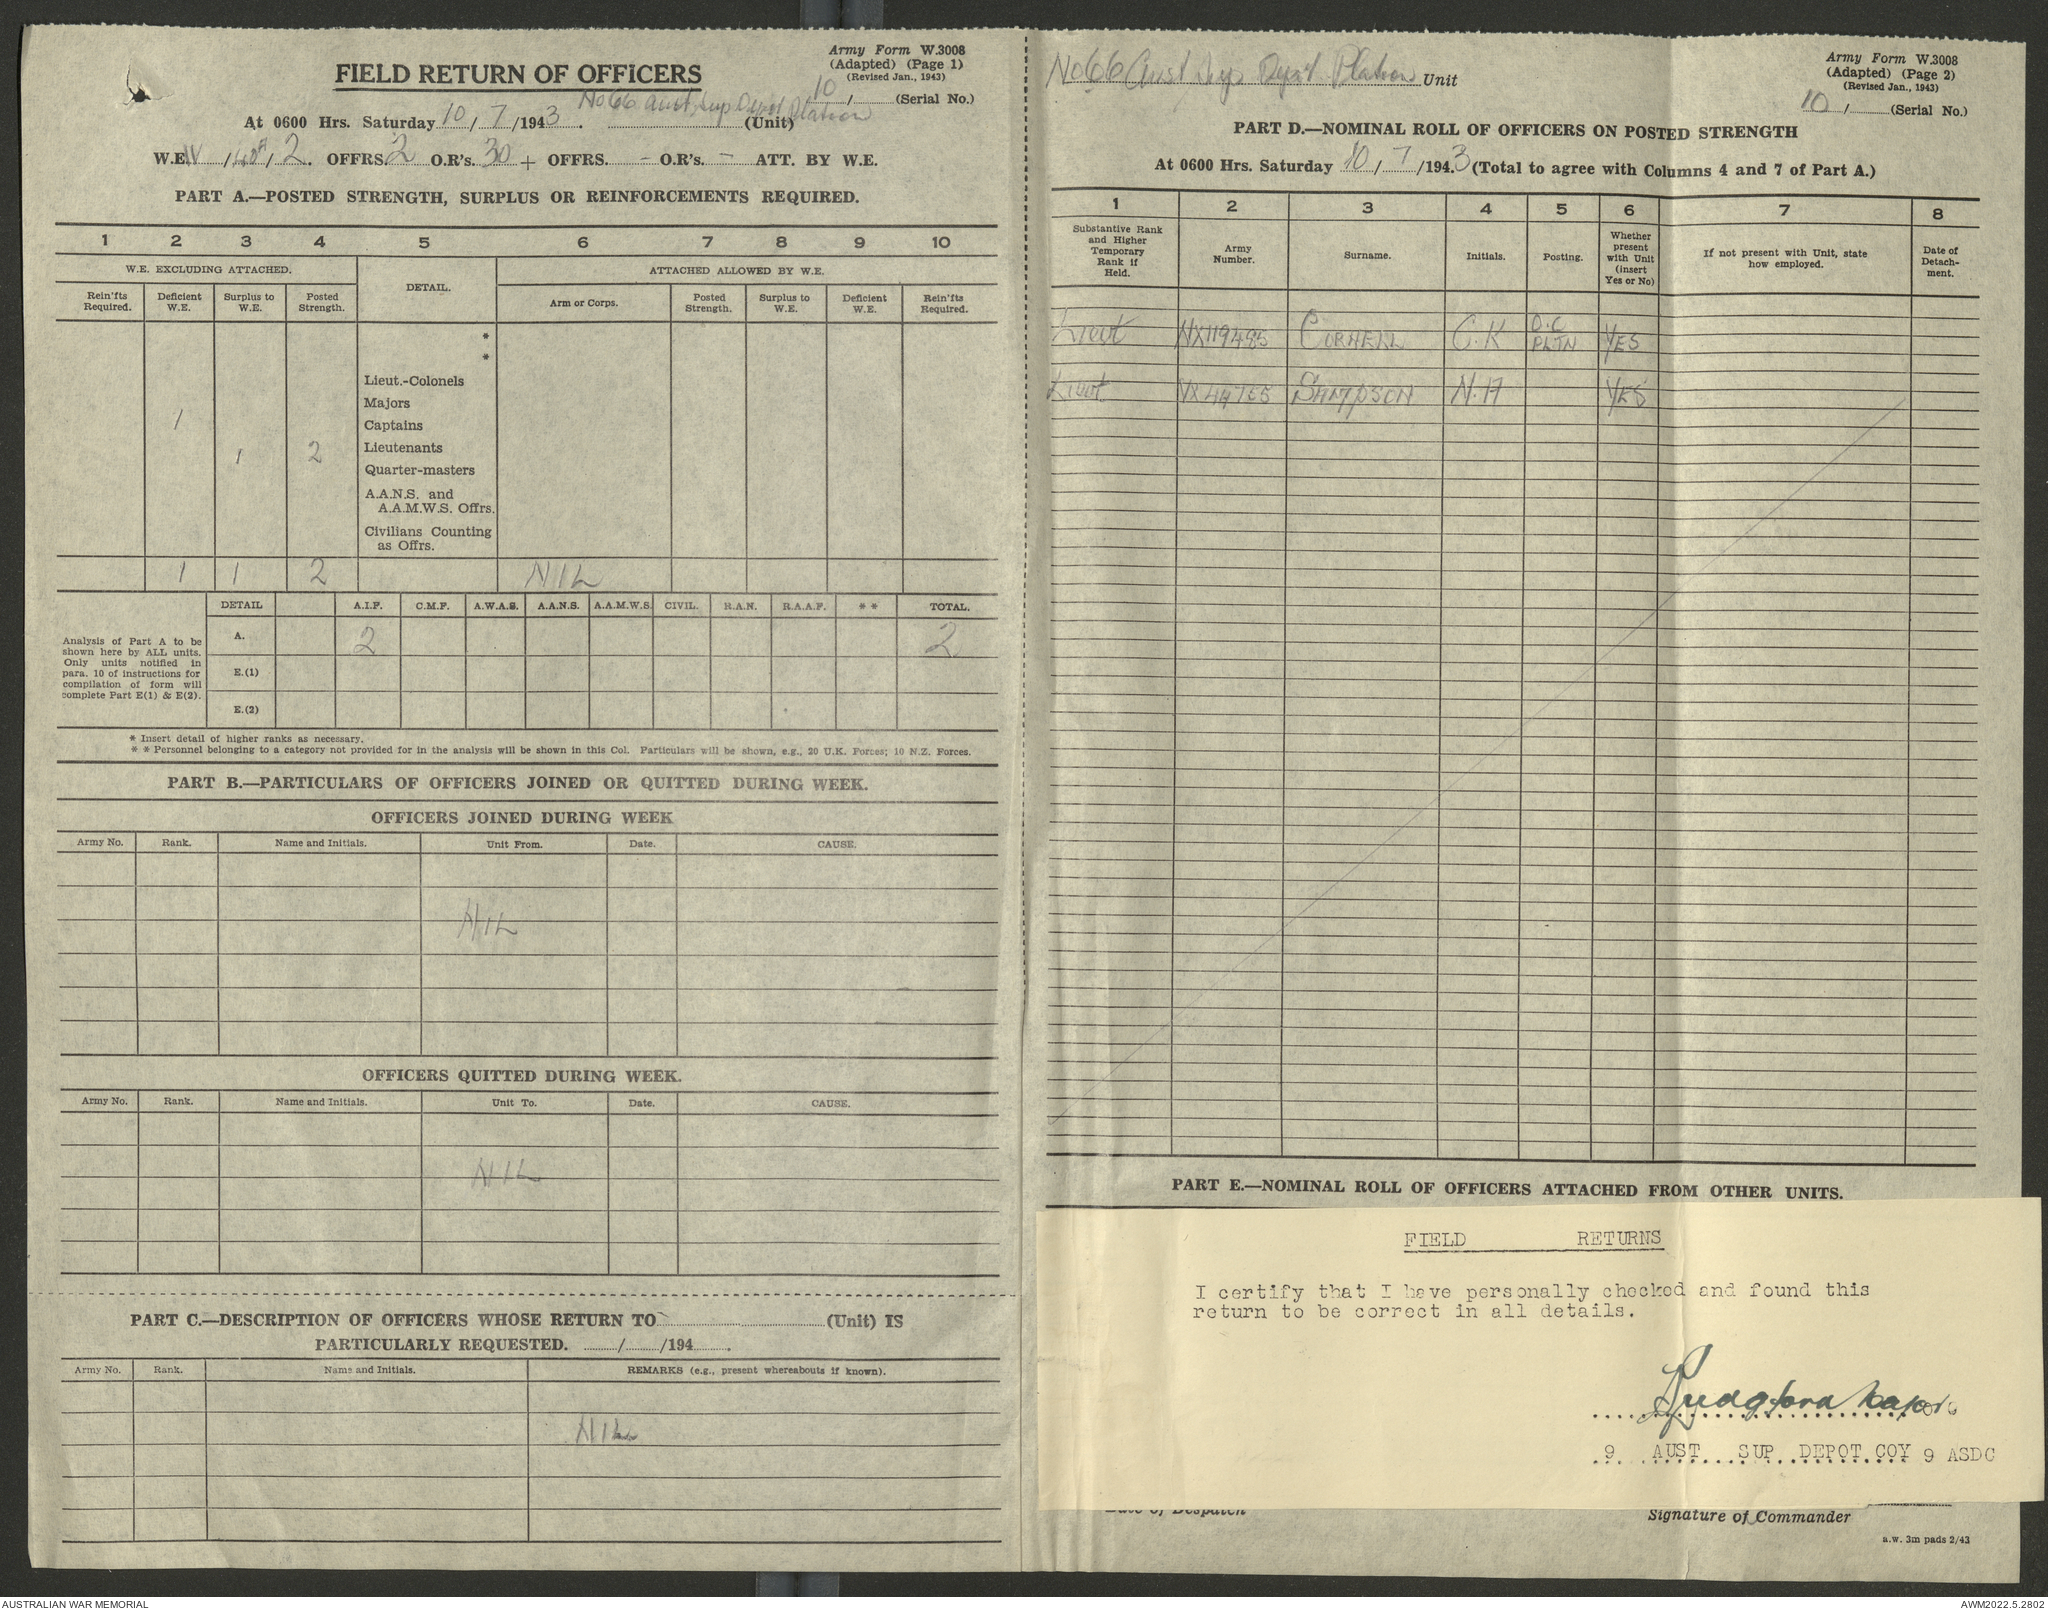 Army Form W.3008
(Adapted) (Page 1)
(Revised Jan., 1943)
FIELD RETURN OF OFFICERS
10/ (Serial No.)
No 66 Aust Sup Depot Platoon
At 0600 Hrs. Saturday 10/7/1943. (Unit)
W.E. IV /40A/ 2. OFFRS. 2 O.R's. 30 + OFFRS. - O.R's. - ATT. BY W.E.
PART A.—POSTED STRENGTH, SURPLUS OR REINFORCEMENTS REQUIRED.
1 2 3 4 5 6 7 8 9 10
W.E. EXCLUDING ATTACHED. DETAIL. ATTACHED ALLOWED BY W.E.
Rein'fts Required. Deficient W.E. Surplus to W.E. Posted Strength. Arm or Corps. Posted Strength. Surplus to W.E. Deficient W.E. Rein'fts Required.
*
*
Lieut.-Colonels
Majors
1 Captains
1 2 Lieutenants
Quarter-masters
A.A.N.S. and
A.A.M.W.S. Offrs.
Civilians Counting
as Offrs.
1 1 2 NIL
DETAIL A.I.F. C.M.F. A.W.A.S. A.A.N.S. A.A.M.W.S. CIVIL. R.A.N. R.A.A.F. * * TOTAL.
Analysis of Part A to be
shown here by ALL units.
Only units notified in
para. 10 of instructions for
compilation of form will
complete Part E(1) & E(2).
A. 2 2
E.(1)
E.(2)
* Insert detail of higher ranks as necessary.
* * Personnel belonging to a category not provided for in the analysis will be shown in this Col. Particulars will be shown, e.g., 20 U.K. Forces; 10 N.Z. Forces.
PART B.—PARTICULARS OF OFFICERS JOINED OR QUITTED DURING WEEK.
OFFICERS JOINED DURING WEEK
Army No. Rank. Name and Initials. Unit From. Date. CAUSE.
NIL
OFFICERS QUITTED DURING WEEK.
Army No. Rank. Name and Initials. Unit To. Date. CAUSE.
NIL
PART C.—DESCRIPTION OF OFFICERS WHOSE RETURN TO (Unit) IS
PARTICULARLY REQUESTED. / /194 .
Army No. Rank. Name and Initials. REMARKS (e.g., present whereabouts if known).
NIL
No 66 Aust Sup Depot Platoon Unit
Army Form W.3008
(Adapted) (Page 2)
(Revised Jan., 1943)
10/ (Serial No.)
PART D.—NOMINAL ROLL OF OFFICERS ON POSTED STRENGTH
At 0600 Hrs. Saturday 10/7/1943 (Total to agree with Columns 4 and 7 of Part A.)
1 2 3 4 5 6 7 8
Substantive Rank and Higher Temporary Rank if Held. Army Number. Surname. Initials. Posting. Whether present with Unit (insert Yes or No) If not present with Unit, state how employed. Date of Detachment.
Lieut NX119485 CORNELL C.K O.C PLTN YES
Lieut NX44755 SAMPSON N.H YES
PART E.—NOMINAL ROLL OF OFFICERS ATTACHED FROM OTHER UNITS.
FIELD RETURNS
I certify that I have personally checked and found this
return to be correct in all details.
Major
9 AUST SUP DEPOT COY 9 ASDC
Date of Despatch
Signature of Commander
a.w. 3m pads 2/43
AUSTRALIAN WAR MEMORIAL
AWM2022.5.2802